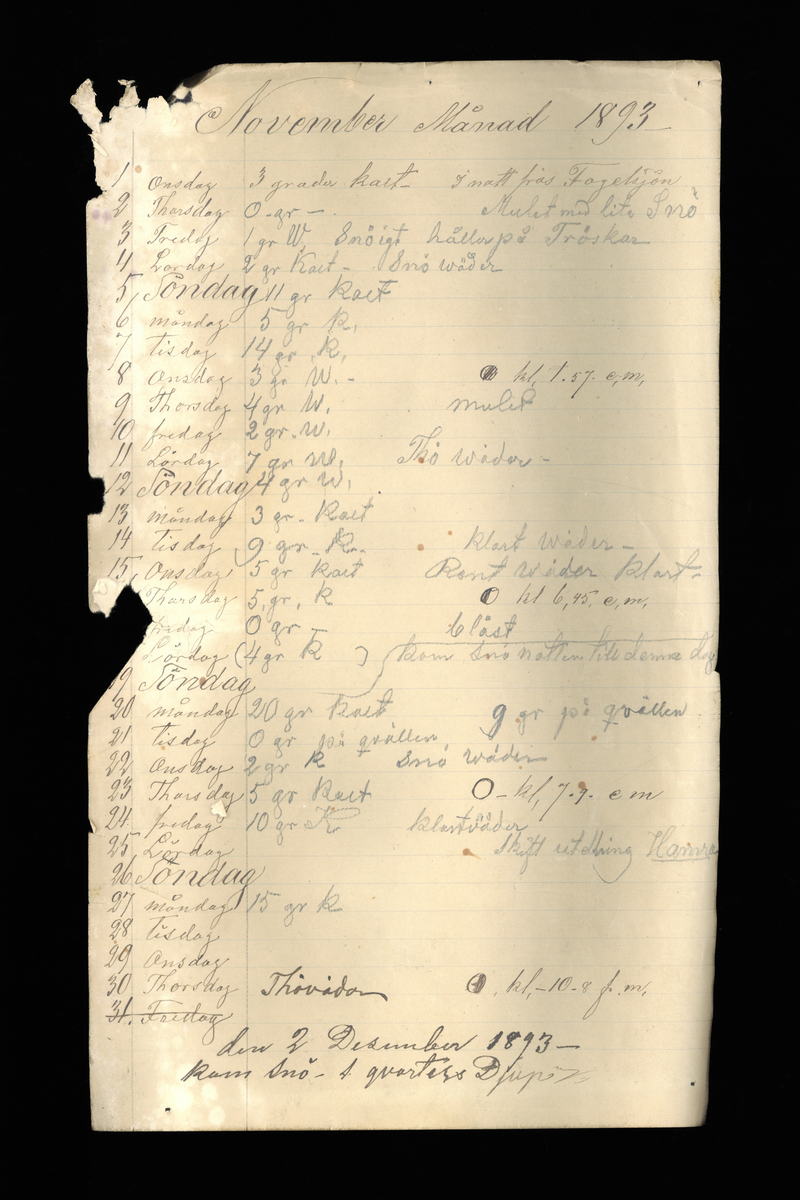 November Månad 1893
1 Onsdag 3 grader kalt - i natt från Fågelsjön
2 Thorsdag 0 - gr - . Mulet med lite Snö
3 Fredag 1 gr W. Snöigt håller på Tröskar
4 Lördag 2 gr Kalt - Snö wäder
5 Söndag 11 gr kalt
6 måndag 5 gr k.
7 tisdag 14 gr . k.
8 Onsdag 3 gr W. - kl, 1.57. e, m,
9 Thorsdag 4 gr W. mulet
10 fredag 2 gr. W.
11 Lördag 7 gr W. Thö wäder -
12 Söndag 4 gr W.
13 måndag 3 gr. Kalt
14 tisdag 9 gr. K. klart wäder -
15 Onsdag 5 gr kalt wäder klart -
Thorsdag 5, gr, k kl 6,45, e, m,
fredag 0 gr - blåst
Lördag (4 gr k ) kom snö natten till denna dag
19 Söndag
20 måndag 20 gr kalt 9 gr på qvällen
21 tisdag 0 gr på qvällen
22 Onsdag 2 gr k Snö wäder
23 Thorsdag 5 gr kalt - kl, 7.9. e m
24 fredag 10 gr K klart wäder
25 Lördag Skift utdelning Hamra
26 Söndag
27 måndag 15 gr k
28 tisdag
29 Onsdag
30 Thorsdag Thöväder . kl, - 10 - 8 f. m.
31. Fredag
den 2 Desember 1893 -
kom snö - 1 qvarters Djup